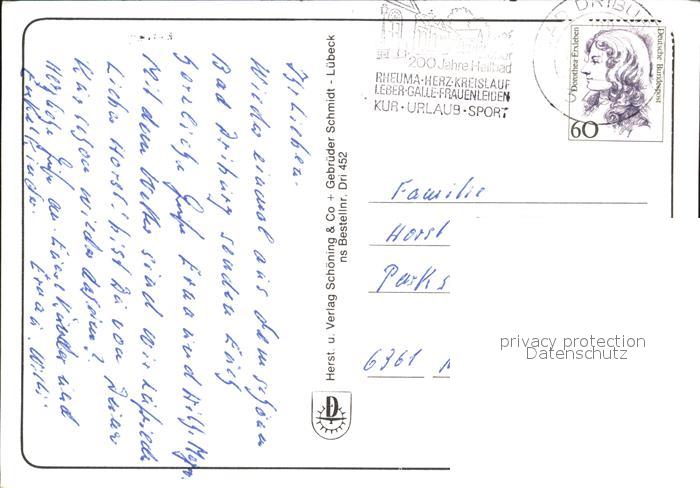 Ihr Lieben.
Wieder einmal aus dem schönen
Bad Driburg senden Euch
herzliche Grüße Erna und Willi
Mit dem Wetter sind wir zufrieden
Lieber Horst! bist Du von Deiner
Kur schon wieder daheim?
Herzliche Grüße an Eure Kinder und
Enkelkinder. Erna u. Willi
Herst. u. Verlag Schöning & Co + Gebrüder Schmidt · Lübeck
ns Bestellnr. Dri 452
BAD DRIBU
200 Jahre Heilbad
RHEUMA·HERZ·KREISLAUF
LEBER·GALLE·FRAUENLEIDEN
KUR · URLAUB · SPORT
Dorothea Erxleben
Deutsche Bundespost
60
Familie
Horst
6361
privacy protection
Datenschutz